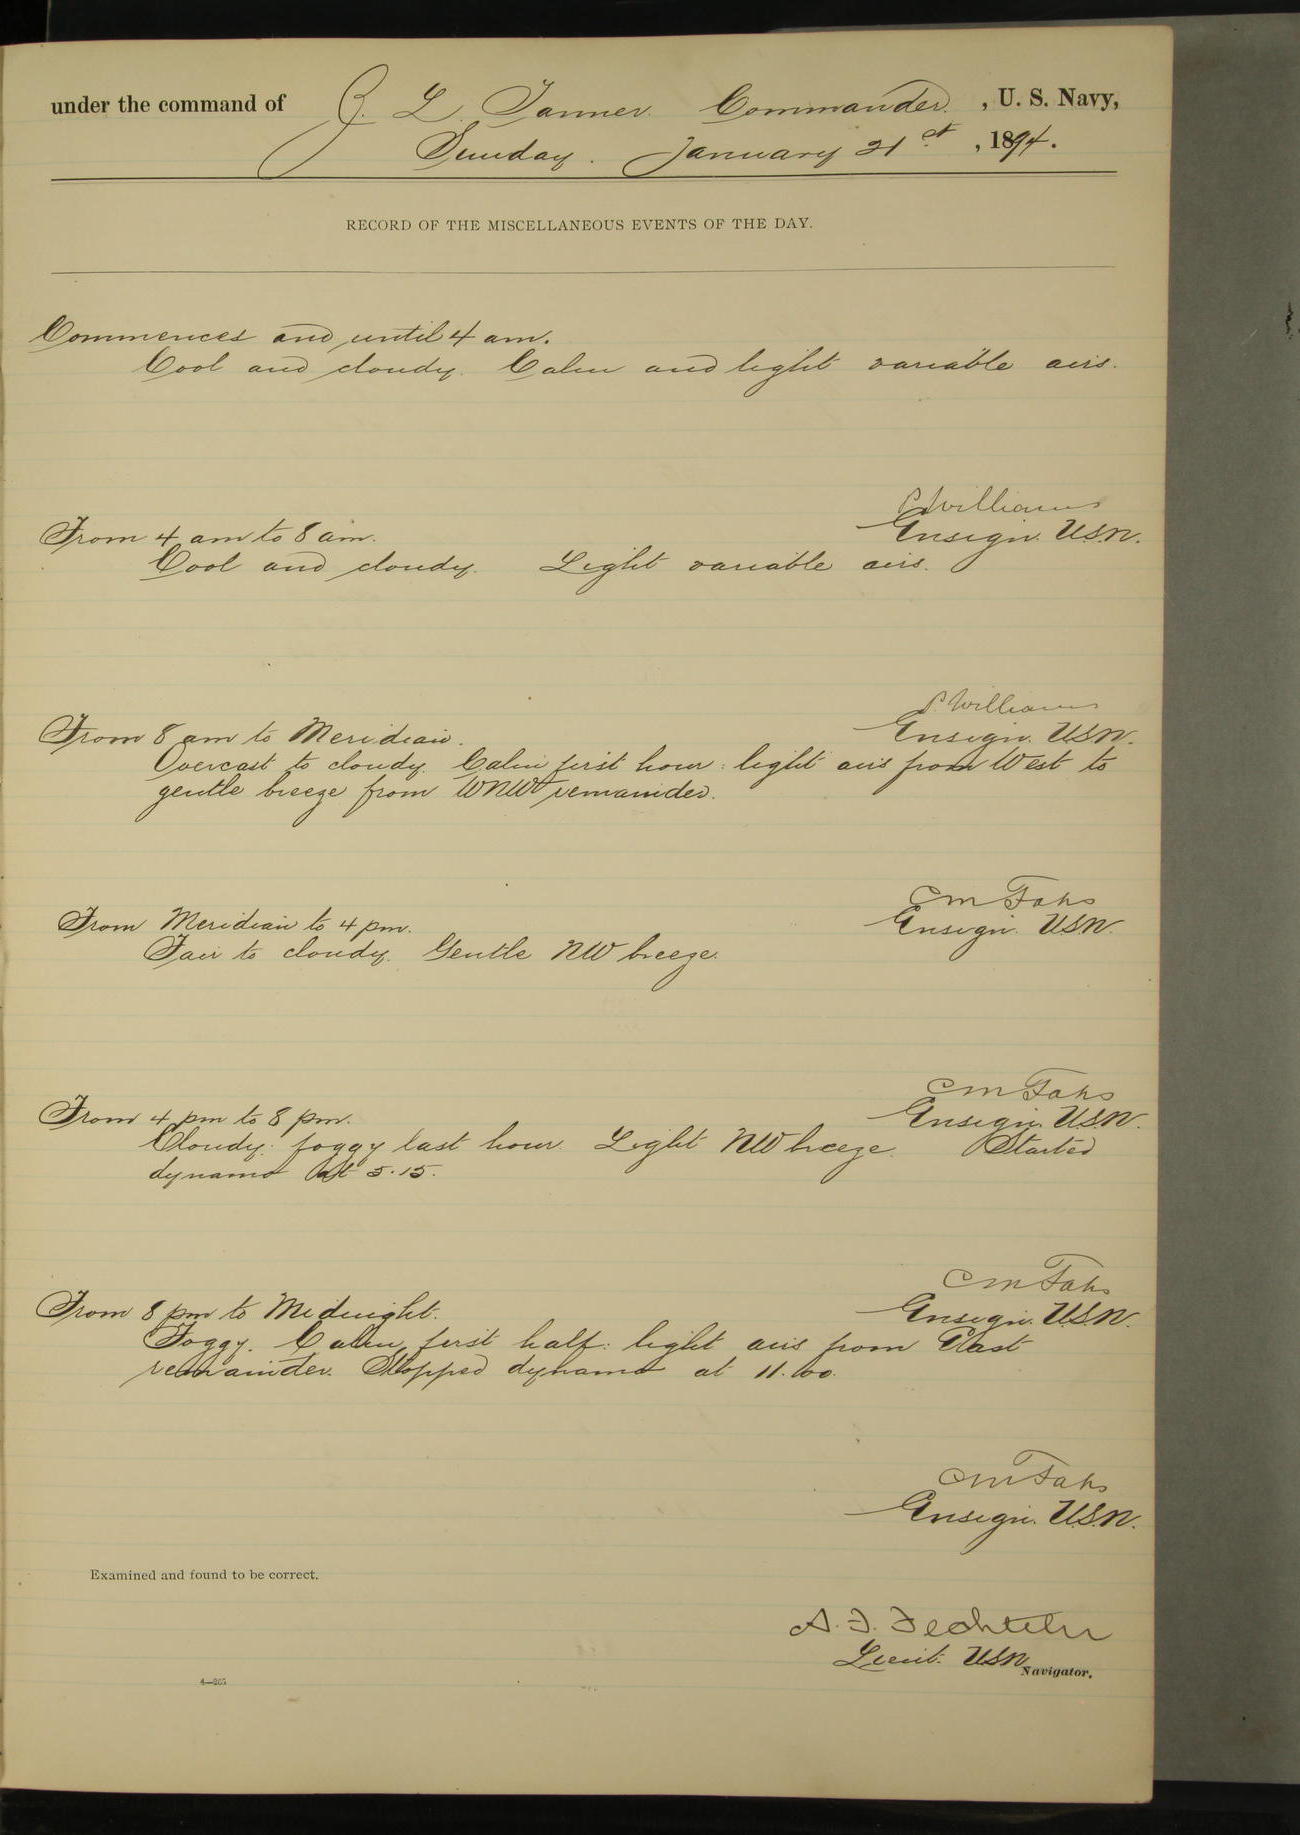 under the command of Z. L. Tanner. Commander. , U. S. Navy,
Sunday. January 21st , 1894.
RECORD OF THE MISCELLANEOUS EVENTS OF THE DAY.
Commences and until 4 am.
Cool and cloudy. Calm and light variable airs.
C Williams
Ensign. U.S.N.
From 4 am to 8 am.
Cool and cloudy. Light variable airs.
C Williams
Ensign. U.S.N.
From 8 am to Meridian.
Overcast to cloudy. Calm first hour: light airs from West to
gentle breeze from WNW remainder.
C M Fahs
Ensign. U.S.N.
From Meridian to 4 pm.
Fair to cloudy. Gentle NW breeze.
C M Fahs
Ensign. U.S.N.
From 4 pm to 8 pm.
Cloudy: foggy last hour. Light NW breeze. Started
dynamo at 5.15.
C M Fahs
Ensign. U.S.N.
From 8 pm to Midnight.
Foggy. Calm first half: light airs from East
remainder. Stopped dynamo at 11.00.
C M Fahs
Ensign. U.S.N.
Examined and found to be correct.
A. F. Fechteler
Lieut. USN
Navigator.
4—265